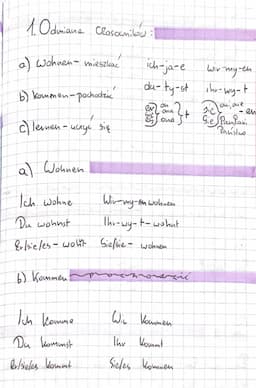 1. Odmiana Czasowników:
a) Wohnen - mieszkać
ich-ja-e
wir-my-en
b) kommen - pochodzić
du-ty-st
ihr-wy-t
er on
sie ona
es ono
t
sie oni, one
Sie Pan/Pani
Państwo
-en
c) lernen - uczyć się
a) Wohnen
Ich wohne
Wir-my-en wohnen
Du wohnst
Ihr-wy-t-wohnt
Er/sie/es - wohnt
Sie/sie - wohnen
b) Kommen
Ich komme
Wir kommen
Du kommst
Ihr kommt
Er/sie/es kommt
kommen